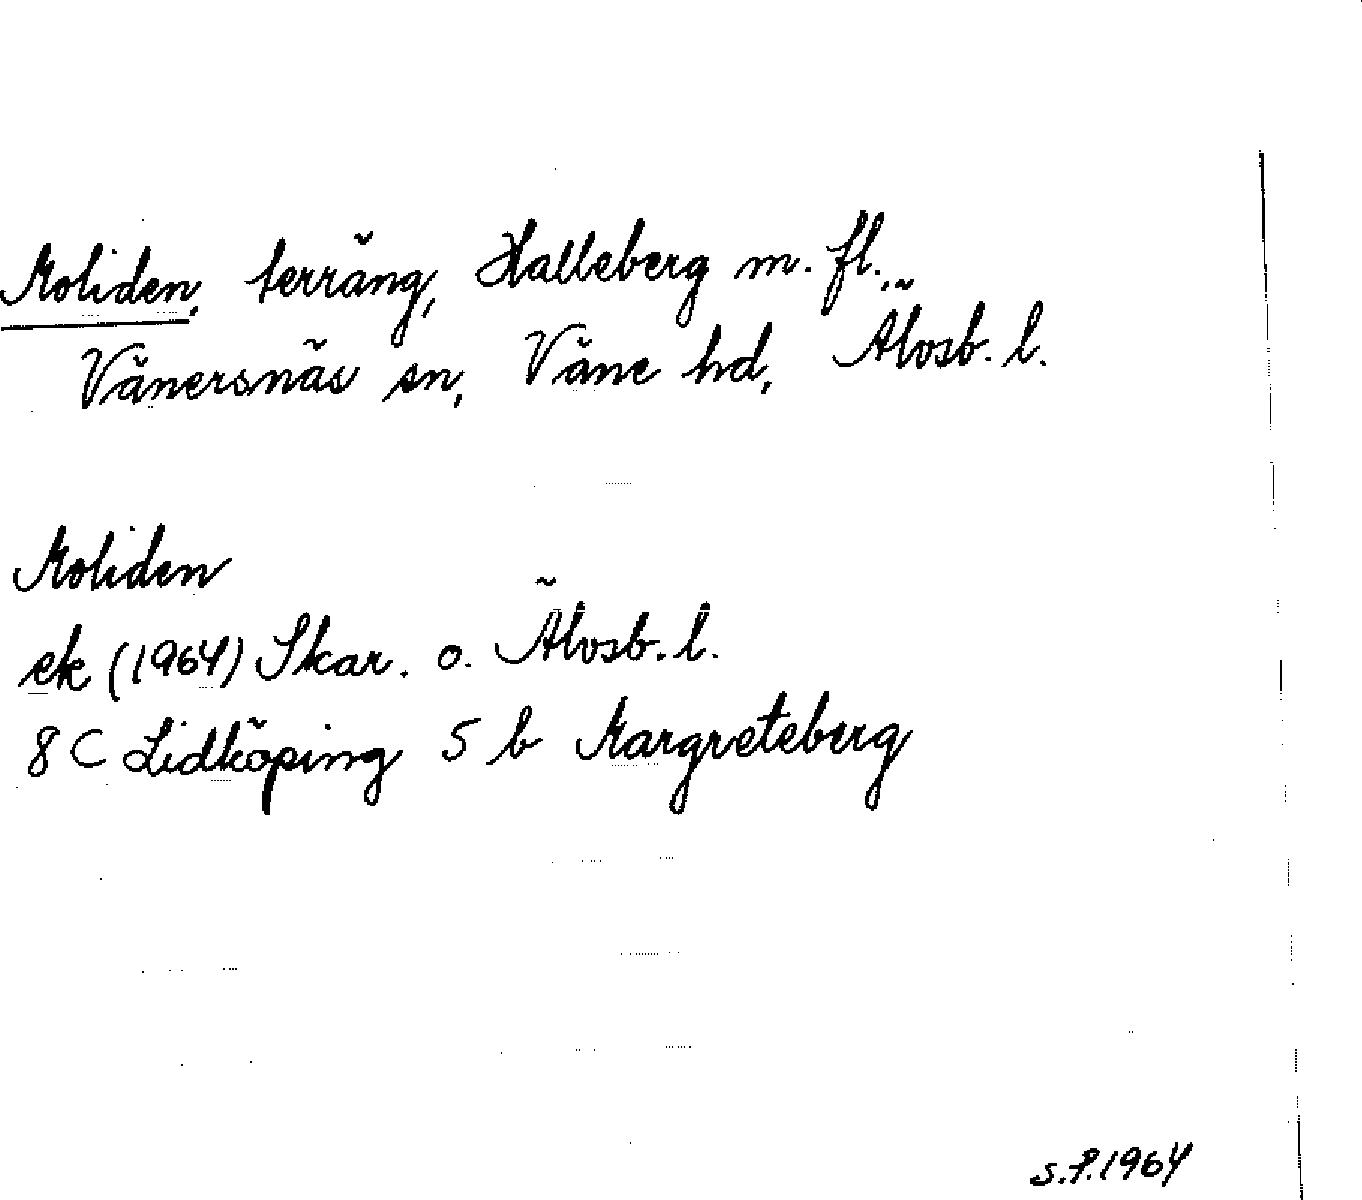 Moliden, terräng, Halleberg m. fl.,
Vänersnäs sn, Väne hd, Älvsb. l.
Moliden
ek (1964) Skar. o. Älvsb. l.
8 C Lidköping 5 b Margreteberg
S.P. 1964